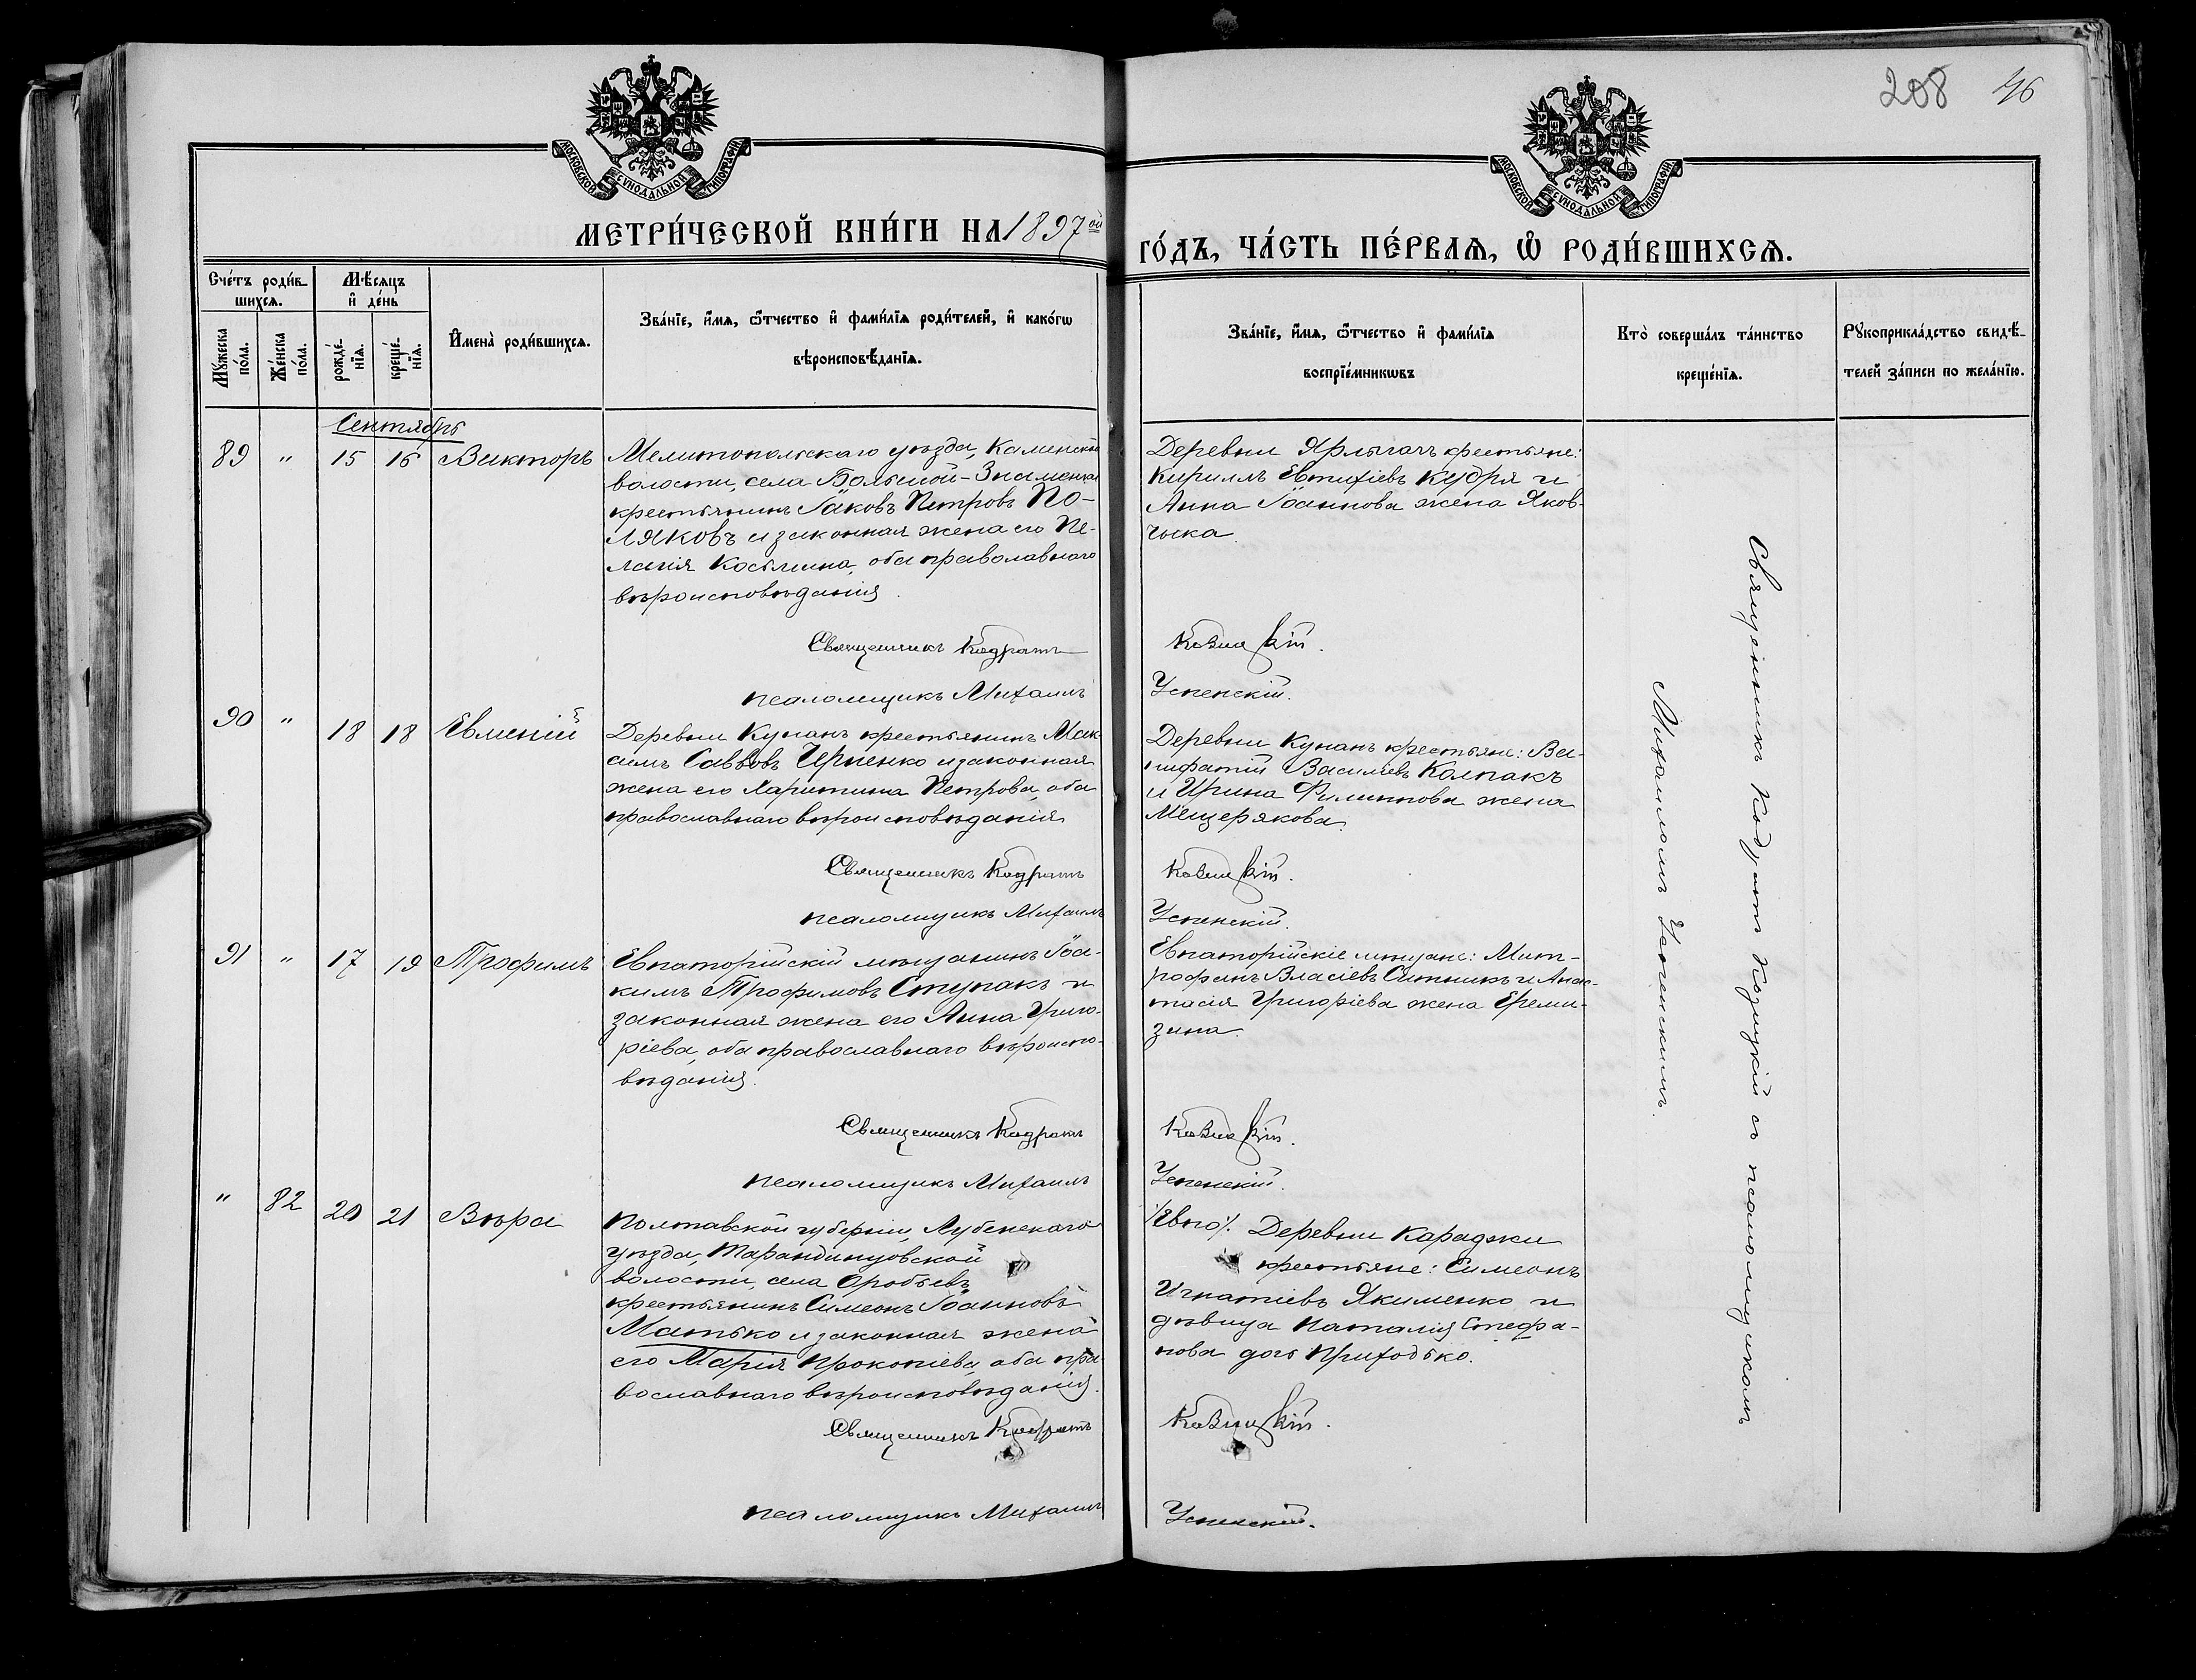 208 46
МОСКОВСКОЙ СѴНОДАЛЬНОЙ ТИПОГРАФІИ
МОСКОВСКОЙ СѴНОДАЛЬНОЙ ТИПОГРАФІИ
МЕТРИ́ЧЕСКОЙ КНИ́ГИ НА 1897ой
ГО́ДЪ, ЧА́СТЬ ПЕ́РВАѦ, Ѽ РОДИ́ВШИХСѦ.
Сче́тъ роди́в-
шихсѧ.
Мꙋ́жеска по́ла.
Же́нска по́ла.
Мѣ́сѧцъ
и҆ де́нь
рожде́-
нїѧ.
креще́-
нїѧ.
И҆мена̀ роди́вшихсѧ.
Зва́нїе, и҆́мѧ, ѻ҆́тчество и҆ фами́лїѧ роди́телей, и҆ како́гѡ
вѣроисповѣ́данїѧ.
Зва́нїе, и҆́мѧ, ѻ҆́тчество и҆ фами́лїѧ
воспрїе́мникѡвъ
Кто̀ соверша́лъ та́инство
креще́нїѧ.
Рꙋкоприкла́дство свидѣ́-
телей за́писи по жела́нїю.
Сентябрь
89 " 15 16 Викторъ
Мелитопольскаго уѣзда, Каменской
волости, села Большой-Знаменки
крестьянинъ Іаковъ Петровъ По-
ляковъ и законная жена его Пе-
лагія Косьмина, оба православнаго
вѣроисповѣданія.
Священникъ Кодратъ
псаломщикъ Михаилъ
Деревни Ярлыгачъ крестьяне:
Кириллъ Евтихіевъ Кудря и
Анна Іоаннова жена Яков-
Козицкій.
Успенскій.
90 " 18 18 Евменій
Деревни Кунанъ крестьянинъ Мак-
симъ Саввовъ Черненко и законная
жена его Харитина Петрова, оба
православнаго вѣроисповѣданія
Священникъ Кодратъ
псаломщикъ Михаилъ
Деревни Кунанъ крестьяне: Во-
нифатій Васильевъ Колпакъ
и Ирина Филиппова жена
Мещерякова.
Козицкій.
Успенскій.
91 " 17 19 Трофимъ
Евпаторійскій мѣщанинъ Іоа-
кимъ Трофимовъ Ступакъ и
законная жена его Анна Григо-
ріева, оба православнаго вѣроиспо-
вѣданія.
Священникъ Кодратъ
псаломщикъ Михаилъ
Евпаторійскіе мѣщане: Мит-
рофанъ Власіевъ Ситникъ и Анас-
тасія Григоріева жена Ереми-
зина.
Козицкій.
Успенскій.
" 82 20 21 Вѣра
Полтавской губерніи, Лубенскаго
уѣзда, Тарандинцовской
волости, села
крестьянинъ Симеонъ Іоанновъ
Матько и законная жена
его Марія Прокопіева, оба пра-
вославнаго вѣроисповѣданія.
Священникъ Кодратъ
псаломщикъ Михаилъ
Деревни Караджи
крестьяне: Симеонъ
Игнатіевъ Якименко и
дѣвица Наталія Стефа-
нова дочь Приходько.
Козицкій.
Успенскій.
Священникъ Кодратъ Козицкій съ псаломщикомъ
Михаиломъ Успенскимъ.